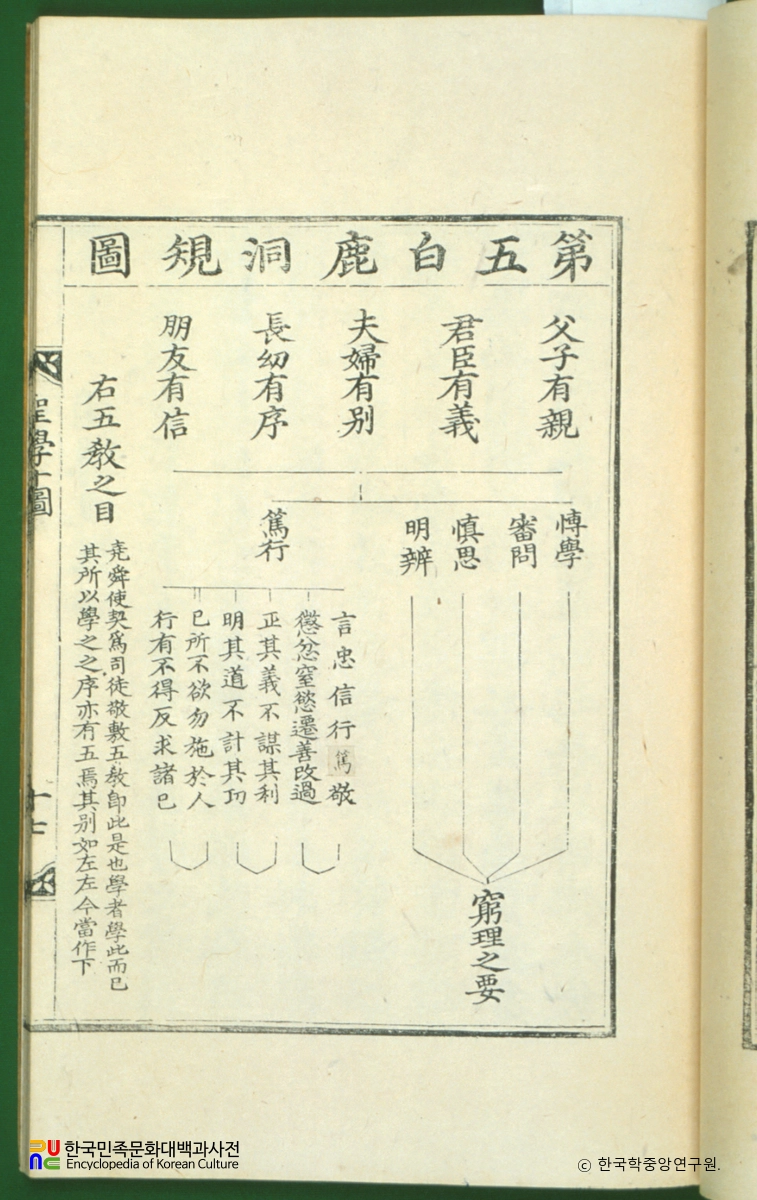 第五白鹿洞規圖
父子有親
君臣有義
夫婦有别
長幼有序
朋友有信
右五教之目
堯舜使契爲司徒敬敷五教卽此是也學者學此而已
其所以學之之序亦有五焉其别如左左今當作下
博學
審問
慎思
明辨
篤行
窮理之要
言忠信行篤敬
懲忿窒慾遷善改過
正其義不謀其利
明其道不計其功
己所不欲勿施於人
行有不得反求諸己
聖學十圖
十七
한국민족문화대백과사전
Encyclopedia of Korean Culture
© 한국학중앙연구원.